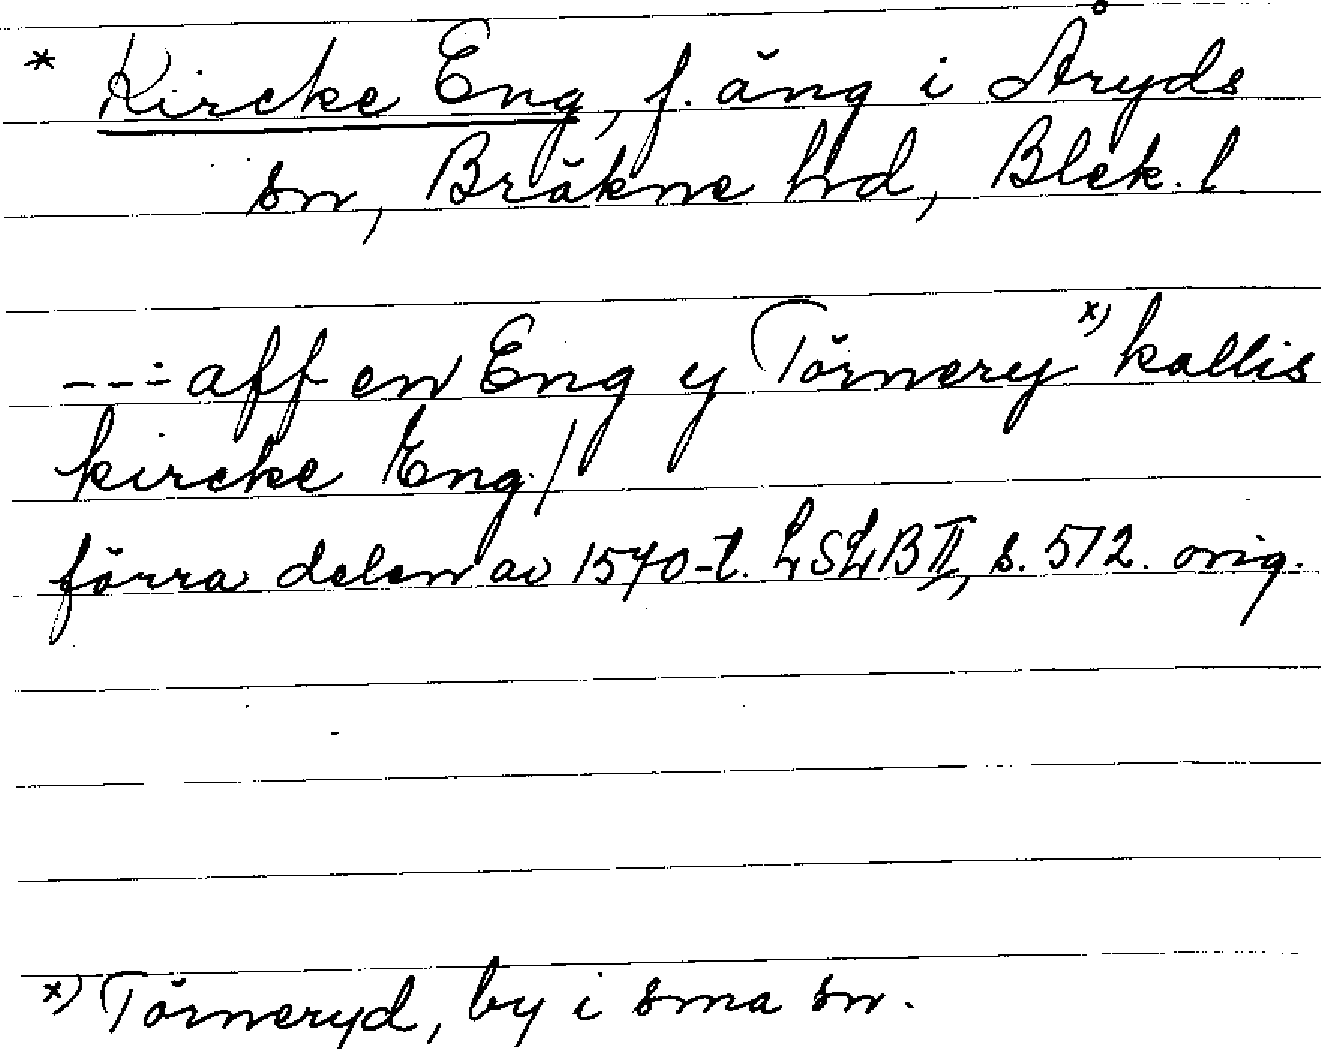 * Kircke Eng, f. äng i Åryds
sn, Bräkne hd, Blek. l
---: aff en Eng y Törnery x) kallis
kircke Eng./
förra delen av 1570-t. LSLB II, s. 572. orig.
x) Törneryd, by i sma sn.